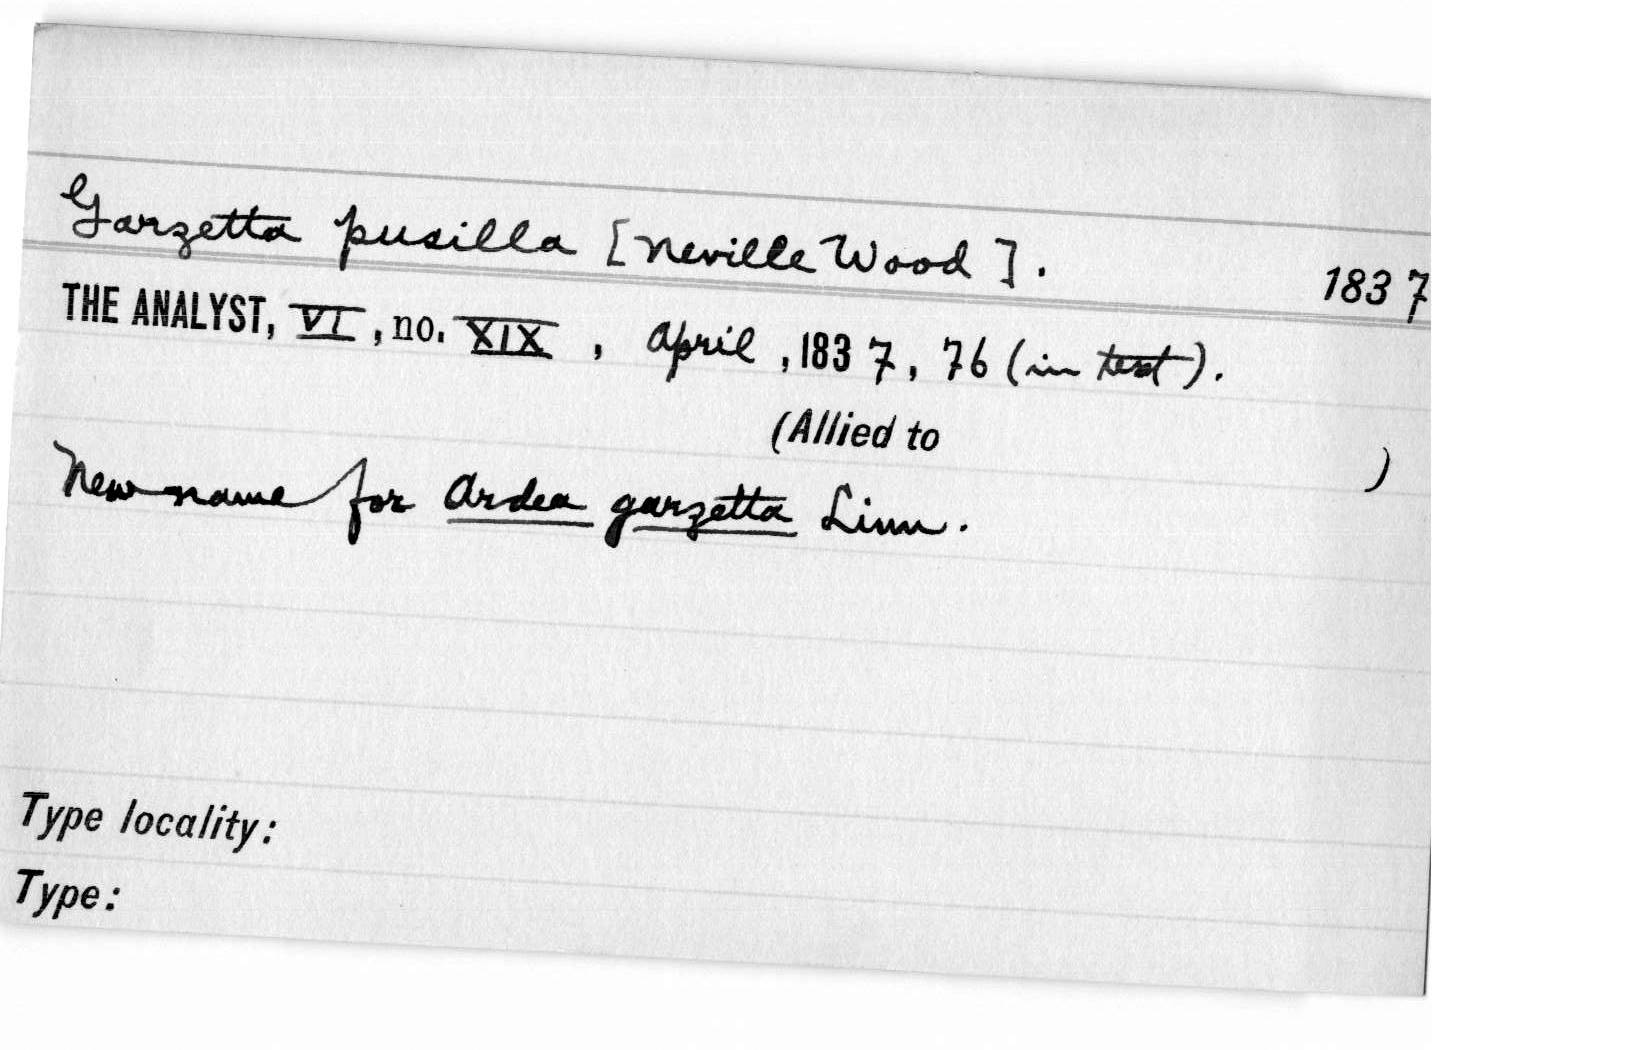 Garzetta pusilla [Neville Wood]. 1837
THE ANALYST, VI, no. XIX, April, 1837, 76 (in text).
(Allied to )
New name for Ardea garzetta Linn.
Type locality:
Type: